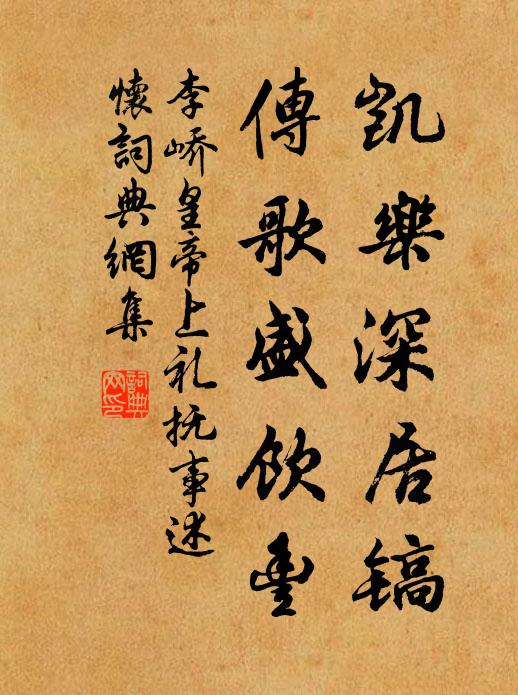 凱樂深居镐
傳歌盛飲豊
李嶠皇帝上礼抚事述
懷詞典網集
詞典
网印